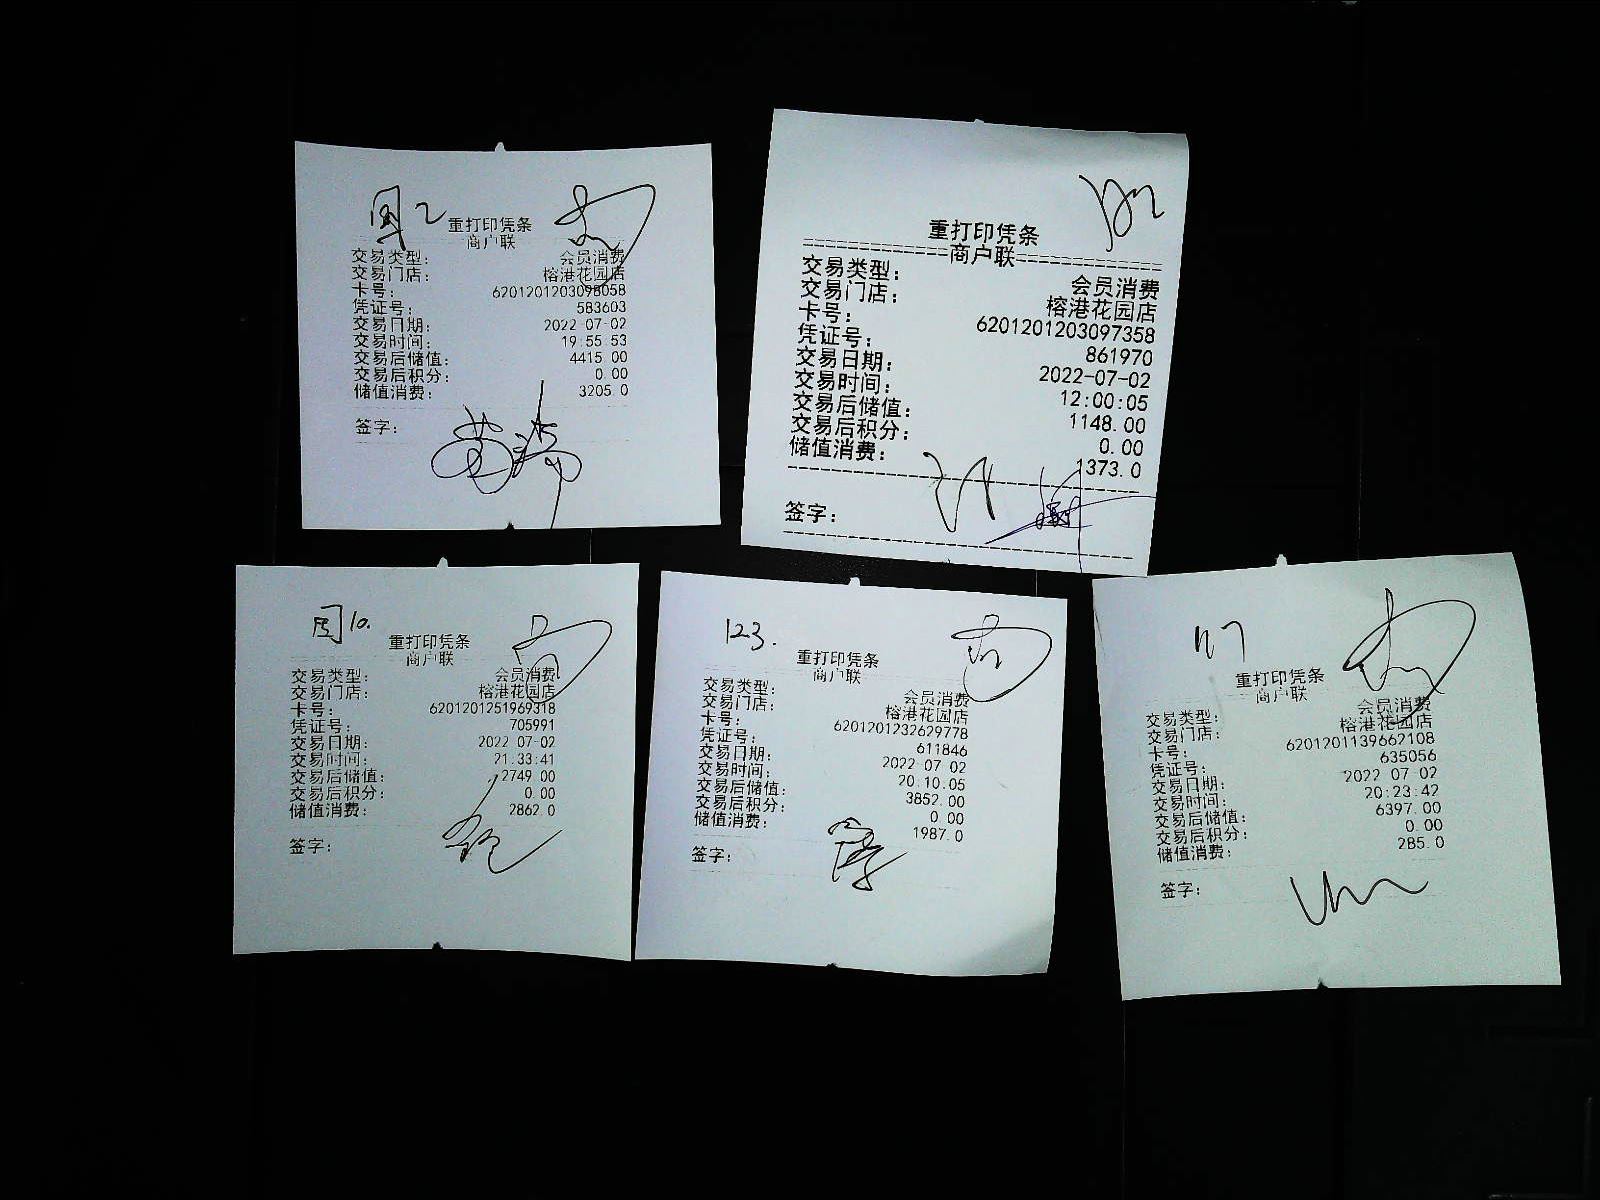 重打印凭条
商户联
交易类型： 会员消费
交易门店： 榕港花园店
卡号： 6201201203098058
凭证号： 583603
交易日期： 2022-07-02
交易时间： 19:55:53
交易后储值： 4415.00
交易后积分： 0.00
储值消费： 3205.0
签字：
重打印凭条
商户联
交易类型： 会员消费
交易门店： 榕港花园店
卡号： 6201201203097358
凭证号： 861970
交易日期： 2022-07-02
交易时间： 12:00:05
交易后储值： 1148.00
交易后积分： 0.00
储值消费： 1373.0
签字：
重打印凭条
商户联
交易类型： 会员消费
交易门店： 榕港花园店
卡号： 6201201251969318
凭证号： 705991
交易日期： 2022-07-02
交易时间： 21:33:41
交易后储值： 2749.00
交易后积分： 0.00
储值消费： 2862.0
签字：
123.
重打印凭条
商户联
交易类型： 会员消费
交易门店： 榕港花园店
卡号： 6201201232629778
凭证号： 611846
交易日期： 2022-07-02
交易时间： 20:10:05
交易后储值： 3852.00
交易后积分： 0.00
储值消费： 1987.0
签字：
重打印凭条
商户联
交易类型： 会员消费
交易门店： 榕港花园店
卡号： 6201201139662108
凭证号： 635056
交易日期： 2022-07-02
交易时间： 20:23:42
交易后储值： 6397.00
交易后积分： 0.00
储值消费： 285.0
签字：